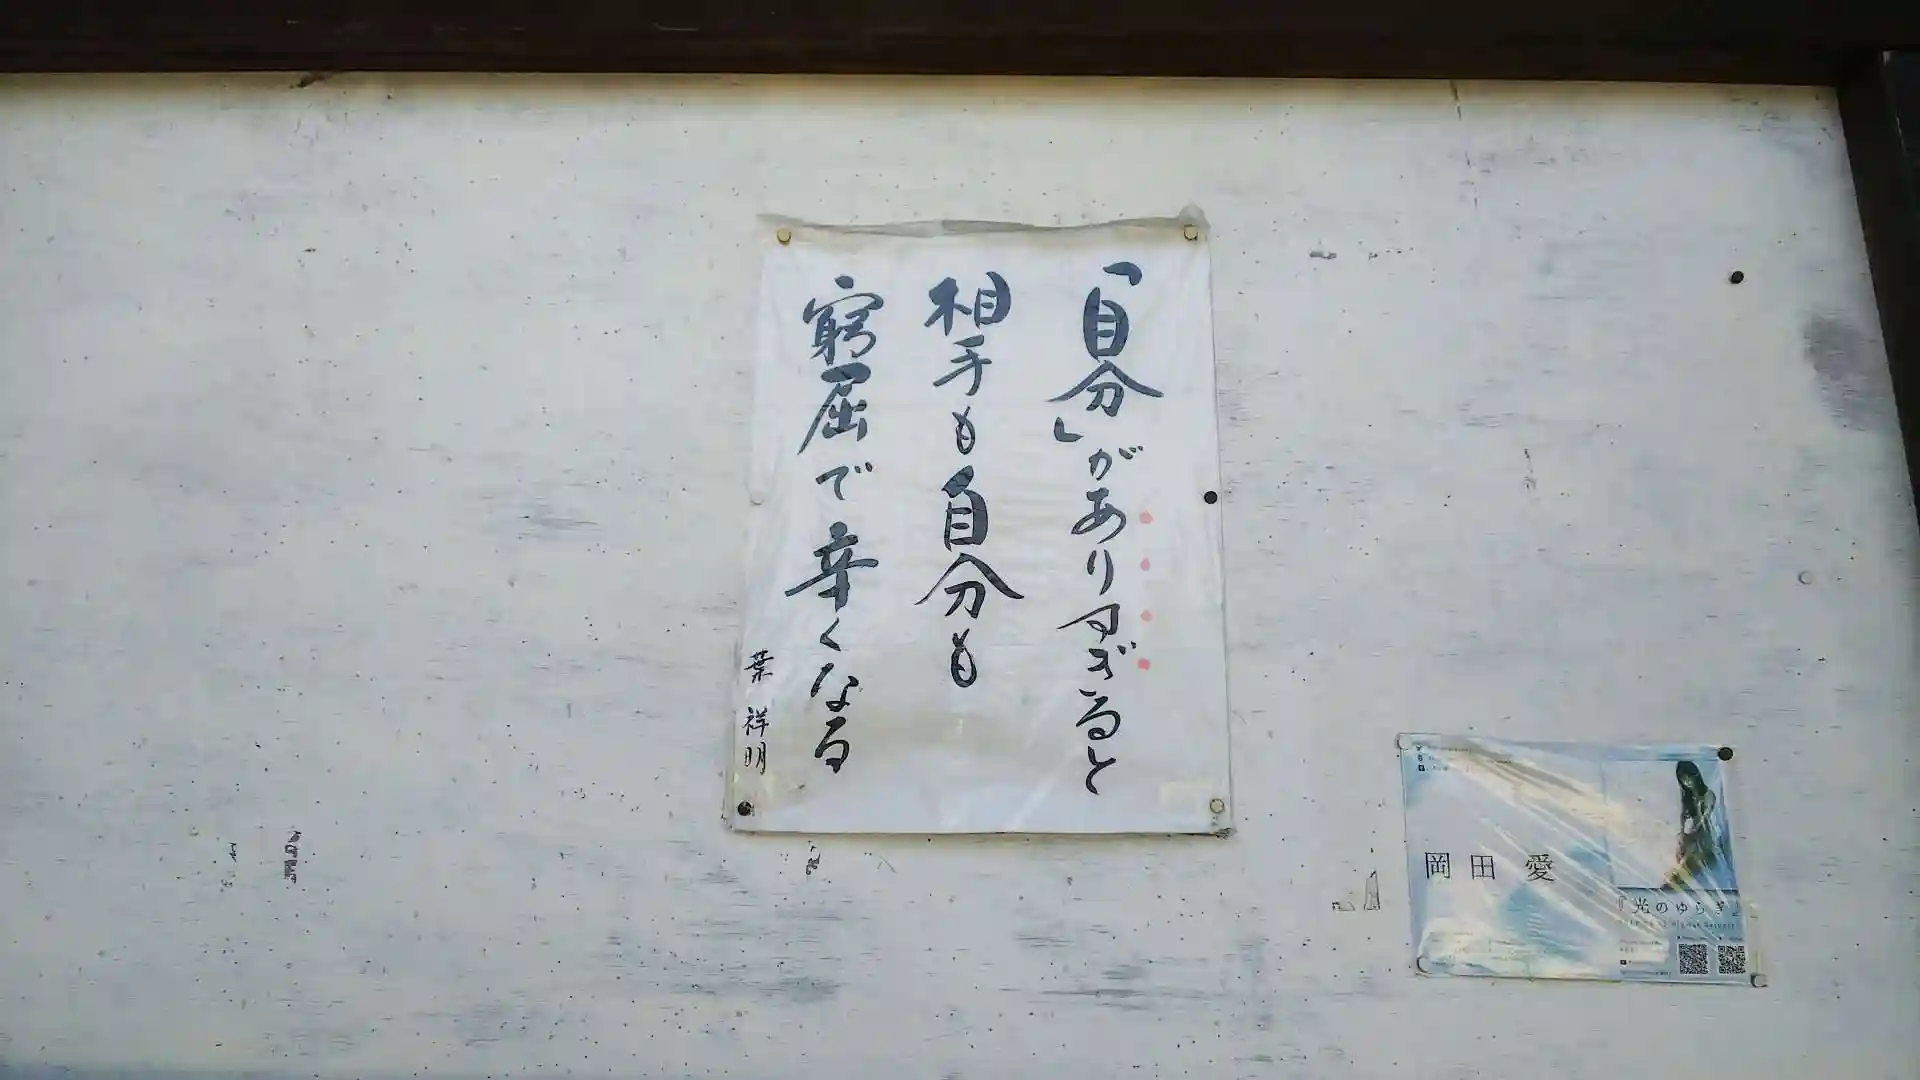 「自分」がありすぎると
相手も自分も
窮屈で辛くなる
葉 祥明
岡田 愛
『光のゆらぎ』